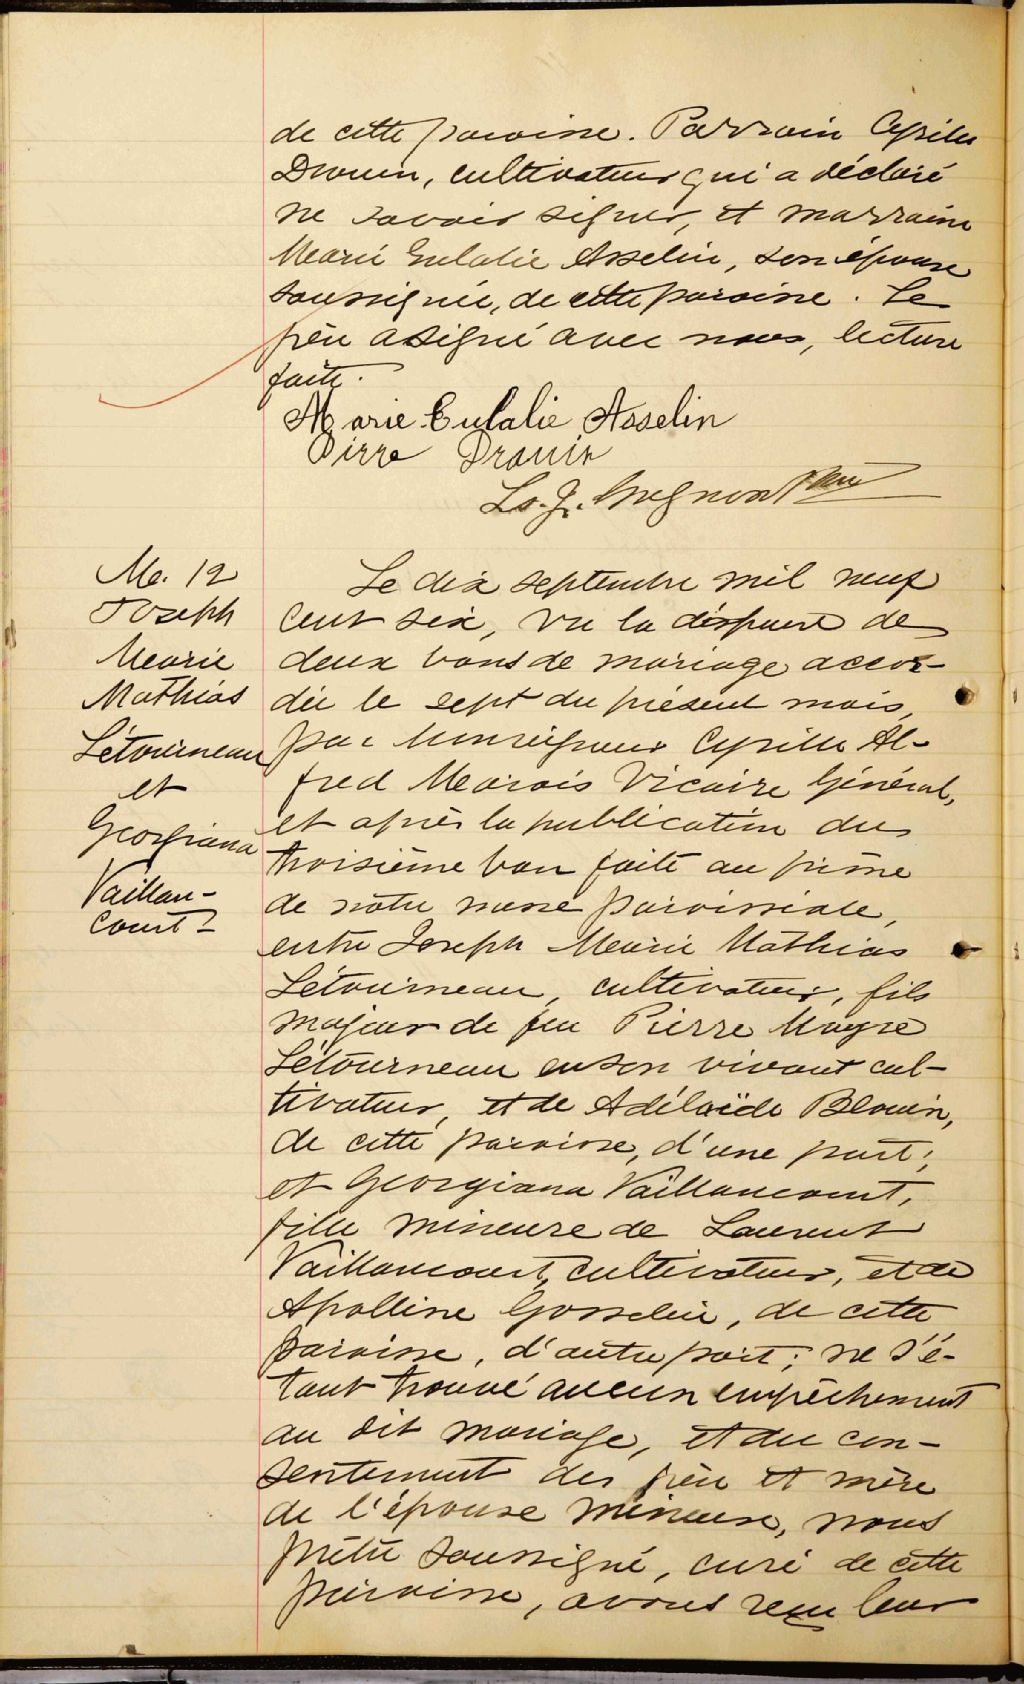 de cette paroisse. Parrain Cyrille
Drouin, cultivateur qui a déclaré
ne savoir signer, et marraine
Marie Eulalie Asselin, son épouse
soussignée, de cette paroisse. Le
père a signé avec nous, lecture
faite.
Marie Eulalie Asselin
Pirre Drouin
Ls. J. Ptre
M. 12
Joseph
Marie
Mathias
Létourneau
et
Georgiana
Vaillan-
court
Le dix septembre mil neuf
cent six, vu la dispense de
deux bans de mariage accor-
dée le sept du présent mois,
par Monseigneur Cyrille Al-
fred Marois Vicaire Général,
et après la publication du
troisième ban faite au prône
de notre messe paroissiale,
entre Joseph Marie Mathias
Létourneau, cultivateur, fils
majeur de feu Pierre Magse
Létourneau en son vivant cul-
tivateur, et de Adélaïde Blouin,
de cette paroisse, d'une part;
et Georgiana Vaillancourt,
fille mineure de Laurent
Vaillancourt, cultivateur, et de
Apolline Gosselin, de cette
paroisse, d'autre part; ne s'é-
tant trouvé aucun empêchement
au dit mariage, et du con-
sentement des père et mère
de l'épouse mineure, nous
prêtre soussigné, curé de cette
paroisse, avons reçu leur